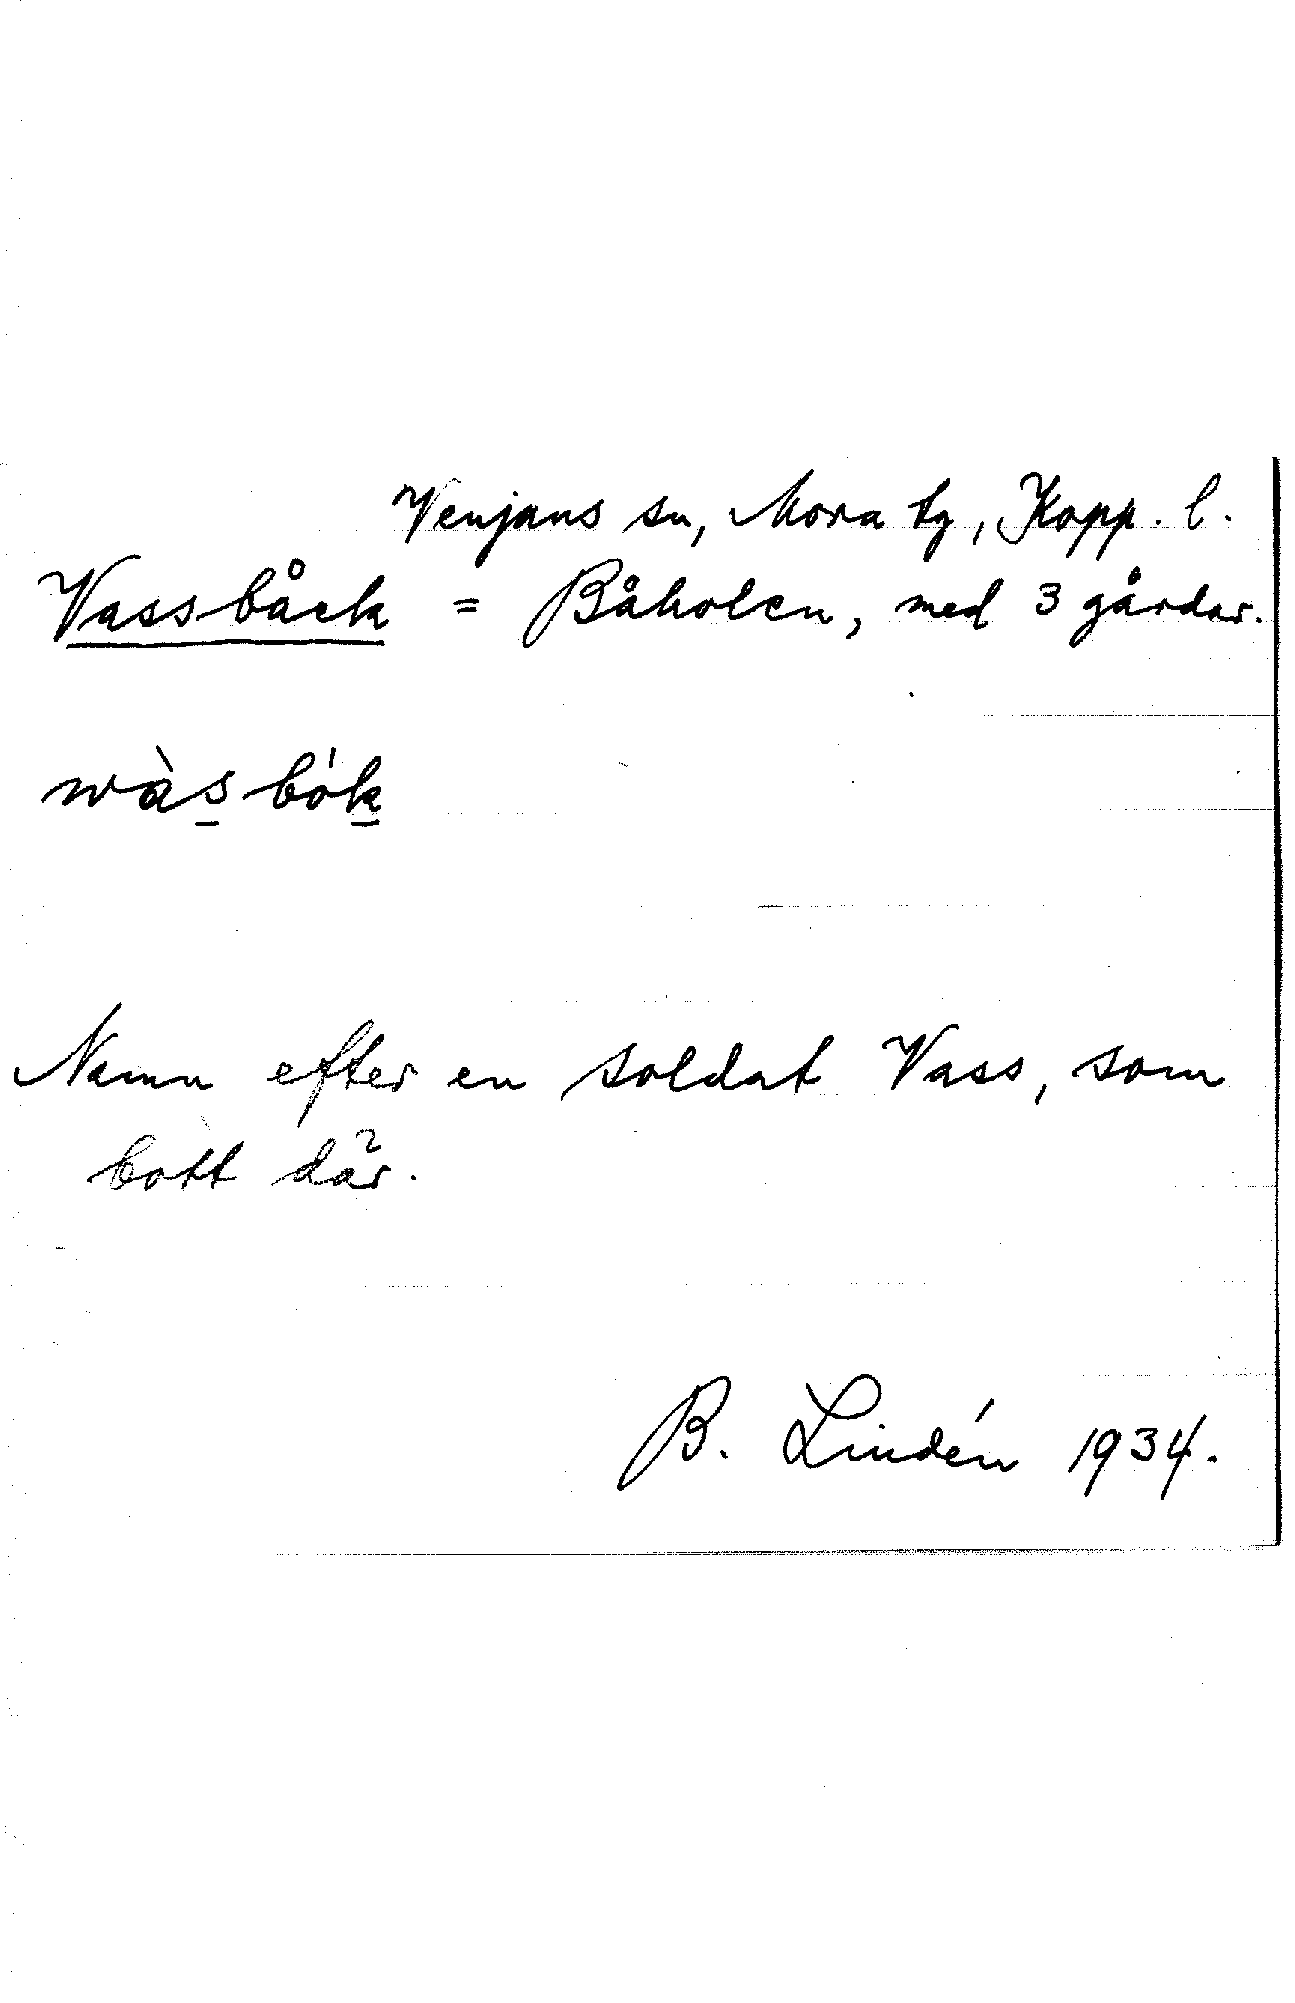 Venjans sn, Mora tg, Kopp. l.
Vassbåck = Båholen, med 3 gårdar.
wàs̲bók̲
Namn efter en soldat Vass, som
bott där.
B. Lindén 1934.